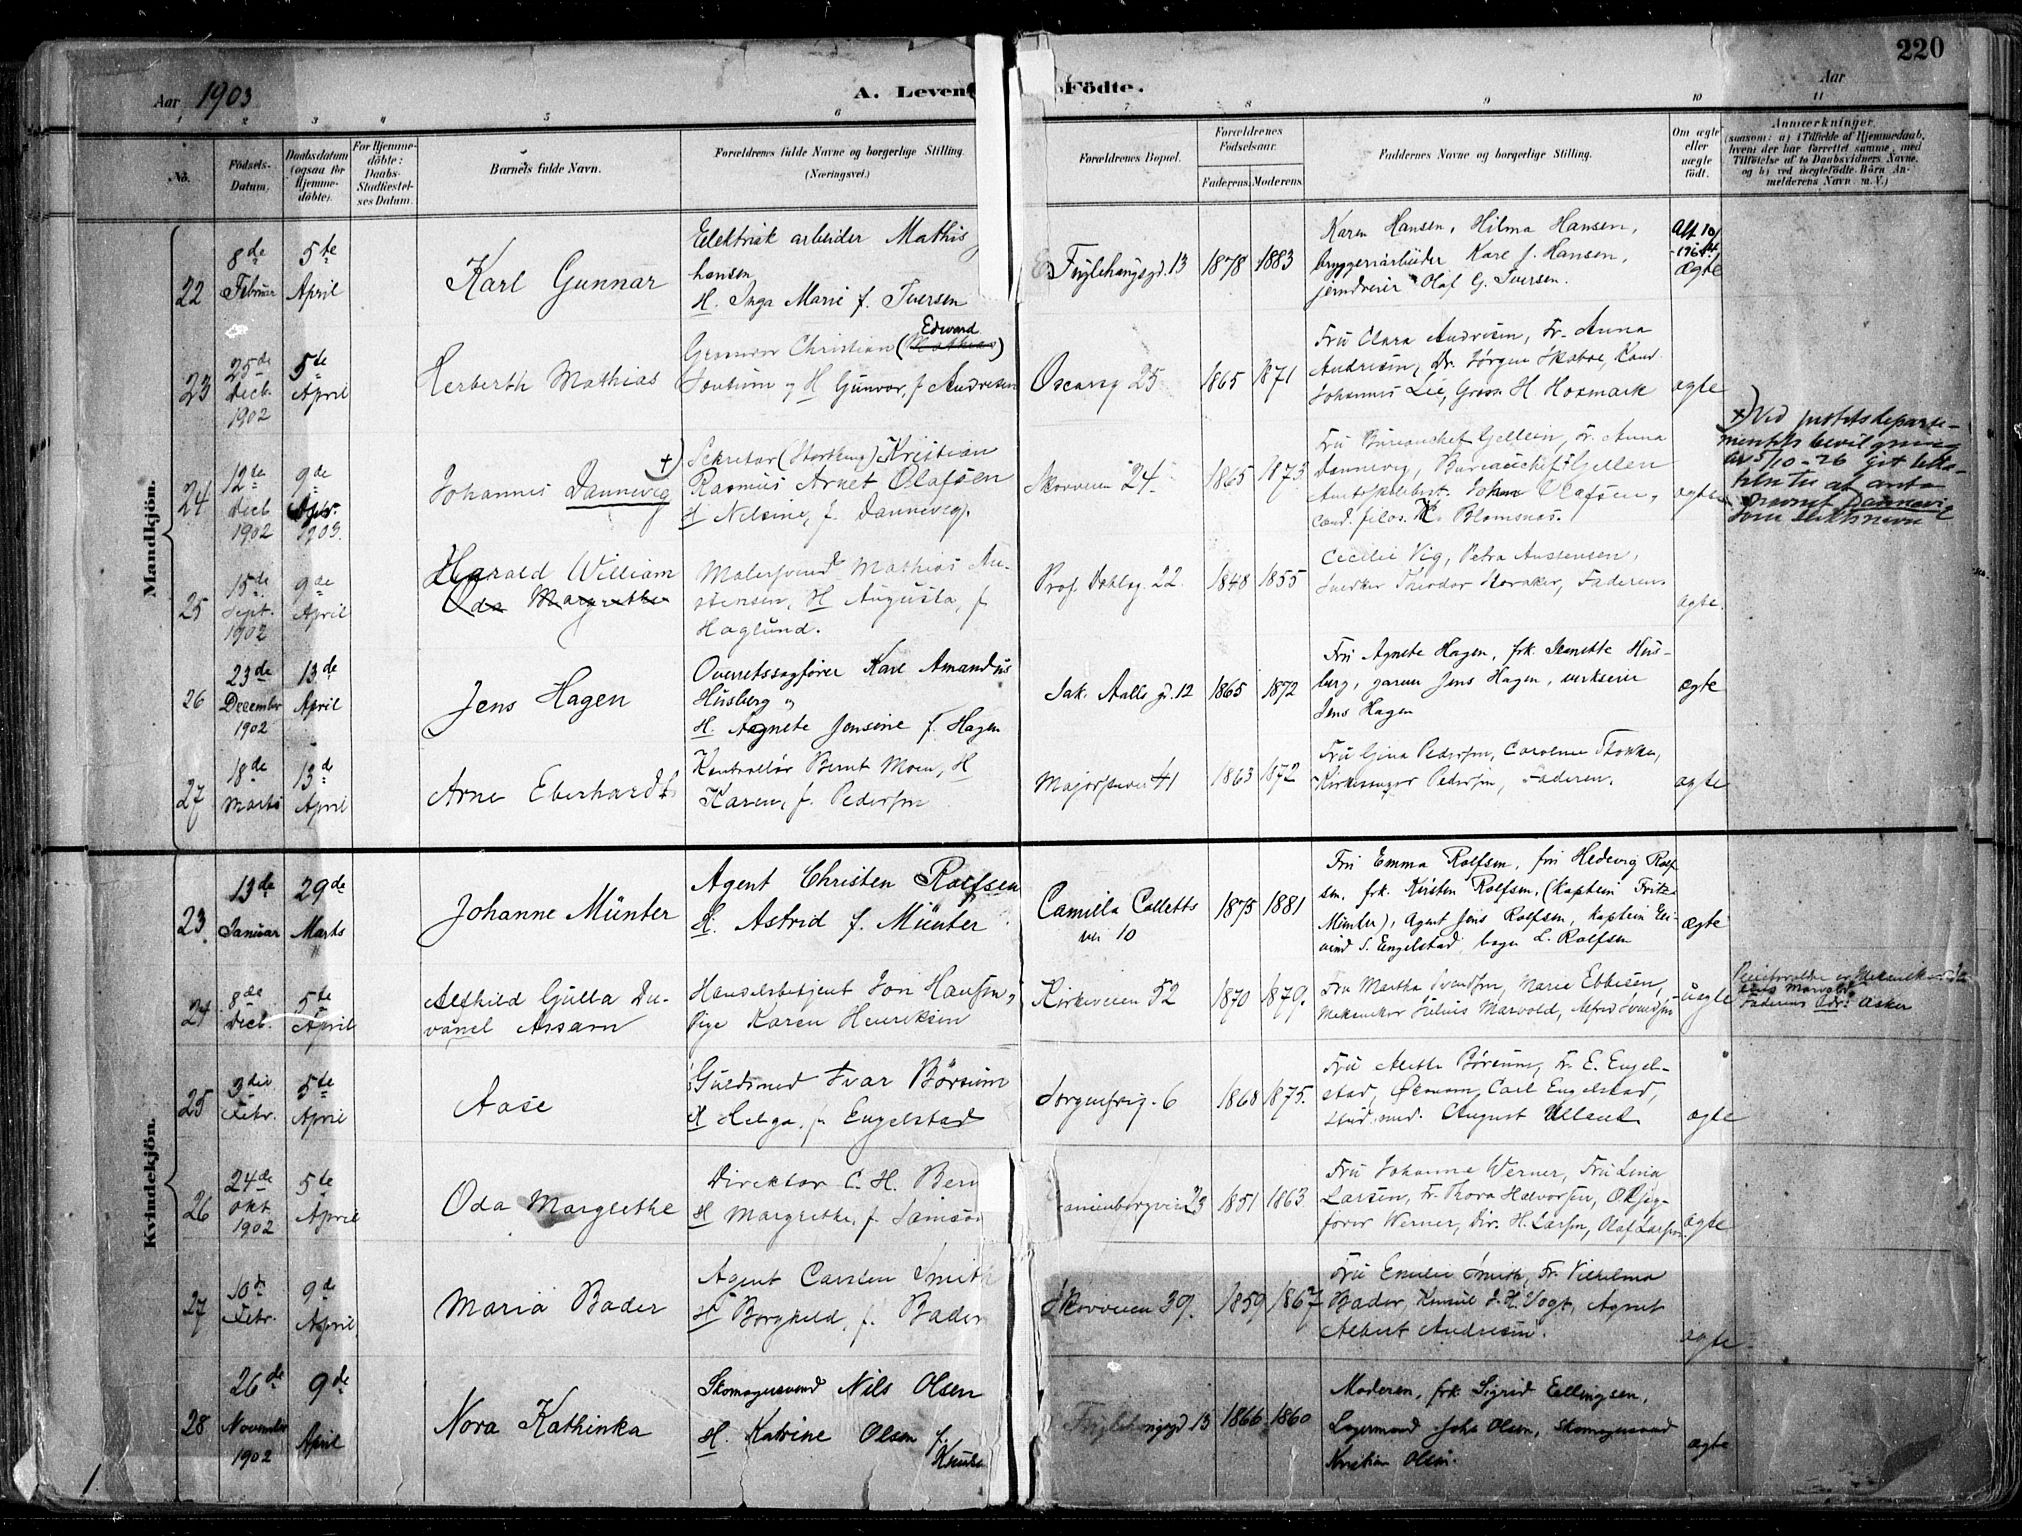 220
Aar 1903
A. Leven
Födte.
Aar
1 2 3 4 5 6 7 8 9 10 11
No.
Födsels-
Datum.
Daabsdatum
(ogsaa for
Hjemme-
döbte).
For Hjemme-
döbte:
Daabs-
Stadfæstel-
ses Datum.
Barnets fulde Navn.
Forældrenes fulde Navne og borgerlige Stilling.
(Næringsvei.)
Forældrenes Bopæl.
Forældrenes
Födselsaar.
Faderens.
Moderens.
Faddernes Navne og borgerlige Stilling.
Om ægte
eller
uægte
født.
Anmærkninger,
(saasom: a) i Tilfælde af Hjemmedaab,
hvem der har forrettet samme, med
Tilföielse af to Daabsvidners Navne,
og b) ved uægtefödte Börn An-
melderens Navn m. V.)
Mandkjön.
22
8de
Februar
5te
April
Karl Gunnar
Elektrisk arbeider Mathis
hansen
H. Inga Marie f. Iversen
Fuglehaugsgd. 13
1878
1883
Karen Hansen, Hilma Hansen,
bryggeriarbeider Karl J. Hansen,
jerndreier Olaf G. Iversen.
Att 10/
ægte
23
25de
Decb.
1902
5te
April
Herberth Mathias
Grosserer Christian (Mathias)
Edward
og H Gunvor, f. Andresen
Oscarsg 25
1865
1871
Fru Clara Andresen, Fr. Anna
Andresen, Dr. Jørgen Skaboe, Kand.
Johannes Lie, Gross. H. Hosmark
ægte
24
12te
Decb
1902
9de
Apr.
1903.
Johannes Dannevig
+)
Sekretær (Storthing) Kristian
Rasmus Arnet Olafsen
H Nelsine, f. Dannevig.
Skovveien 24.
1865
1873
Fru Bureauchef Gjellein, Fr. Anna
Dannevig, Bureauchef Gjellein
Amtsskolebest. Johan Olafsen,
cand. filos. K. Blomsnes.
ægte
+) Ved justitsdeparte-
mentets bevilgning
av 5/10-26 git tilla-
telse til at anta
navnet Dannevig
som slektsnavn
25
15de
Sept.
1902
9de
April
Harald William
Oda Margrethe
Malersvend Mathias Au-
stensen, H Augusta, f.
Haglund.
Prof. Dahlsg. 22.
1848
1855
Cecilie Vig, Petra Austensen,
Snedker Theodor Horaker, Faderen
ægte.
26
23de
December
1902
13de
April
Jens Hagen
Overretssagfører Karl Amandus
Husberg og
H. Agnete Jensine f. Hagen
Jak. Aalls gd. 12
1865
1872
Fru Agnete Hagen, frk. Jeanette Hus-
berg, garver Jens Hagen, verkseier
Jens Hagen
ægte
27
18de
Marts
13de
April
Arne Eberhardt
Kontrollør Bernt Moen, H
Karen, f. Pedersen
Majorstuveien 41
1863
1872
Fru Gina Pedersen, Caroline Flokka,
Kirkesanger Pedersen, Faderen.
ægte
Kvindekjön.
23
13de
Januar
29de
Marts
Johanne Münter
Agent Christen Rolfsen
H. Astrid f. Münter
Camilla Colletts
vei 10
1875
1881
Fru Emma Rolfsen, fru Hedevig Rolf
sen, frk. Kirsten Rolfsen, (kaptein Fritz
Münter), Agent Jens Rolfsen, kaptein Ei-
vind S. Engelstad, L. Rolfsen
ægte
24
8de
Decb.
5te
April
Alfhild Gulla Du-
vanel Assarn
Handelsbetjent Jon Hansen,
Pige Karen Henriksen
Kirkeveien 52
1870
1879.
Fru Martha Svendsen, Marie Ebbesen,
Mekaniker Julius Marvold, Alfred Svendsen
uægte
Pleieforældre er Mekaniker Ju-
lius Marvold
Faderens Adr: Asker
25
3die
Febr.
5te
April
Aase
Guldsmed Ivar Börsum
H Helga, f. Engelstad
Sorgenfrig. 6
1868
1875.
Fru Alette Børsum, Fr. E. Engel-
stad, Økonom Carl Engelstad,
stud. med. August Ulland
ægte
26
24de
Okt.
1902
5te
April
Oda Margrethe
Direktør C. H. Ber
H Margrethe, f. Samso
anienborgveien 23
1851
1863.
Fru Johanne Werner, Fru Lina
Larsen, Fr. Thora Halvorsen, O.rsag-
fører Werner, Dir. H. Larsen, Olaf Larsen
ægte
27
10de
Febr.
9de
April
Maria Bader
Agent Carsten Smith
H Borghild, f. Bader
Skovveien 39.
1859
1867
Fru Emilie Smith, Fr. Vilhelma
Bader, Konsul J. H. Vogt, Agent
Albert Andresen.
ægte
28
26de
November
1902
9de
April
Nora Kathinka
Skomagersvend Nils Olsen
H. Katrine Olsen f.
Knuds
Fuglehaugsgd 13
1866
1860
Moderen, frk. Sigrid Ellingsen,
Lagermand Johs Olsen, skomagersvend
Kristian Olsen.
ægte